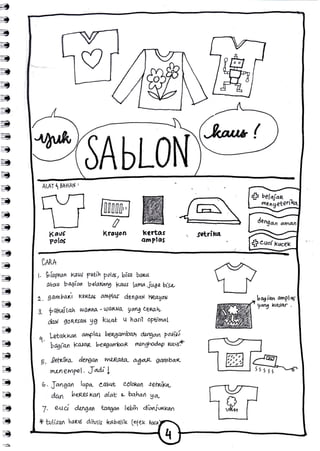 yuk
SAbLON
kaus !
ALAT & BAHAN :
Kaus
Polos
Krayon
kertas
amplas
setrika
belajar
menyeterika
dengan aman
cuci kucek
CARA
1. Siapkan kaus putih polos, bisa baru
atau bagian belakang kaus lama juga bisa
2. gambari kertas amplas dengan krayon
3. pakailah warna-warna yang cerah
dan goresan yg kuat u hasil optimal
4. Letakkan amplas bergambar dengan posisi
bagian kasar bergambar menghadap kaus
bagian amplas
yang kasar
5. Setrika dengan merata agar gambar
menempel. Jadi!
6. Jangan lupa cabut colokan setrika,
dan bereskan alat & bahan ya
7. cuci dengan tangan lebih dianjurkan
* tulisan harus ditulis kebalik (efek kaca)
4